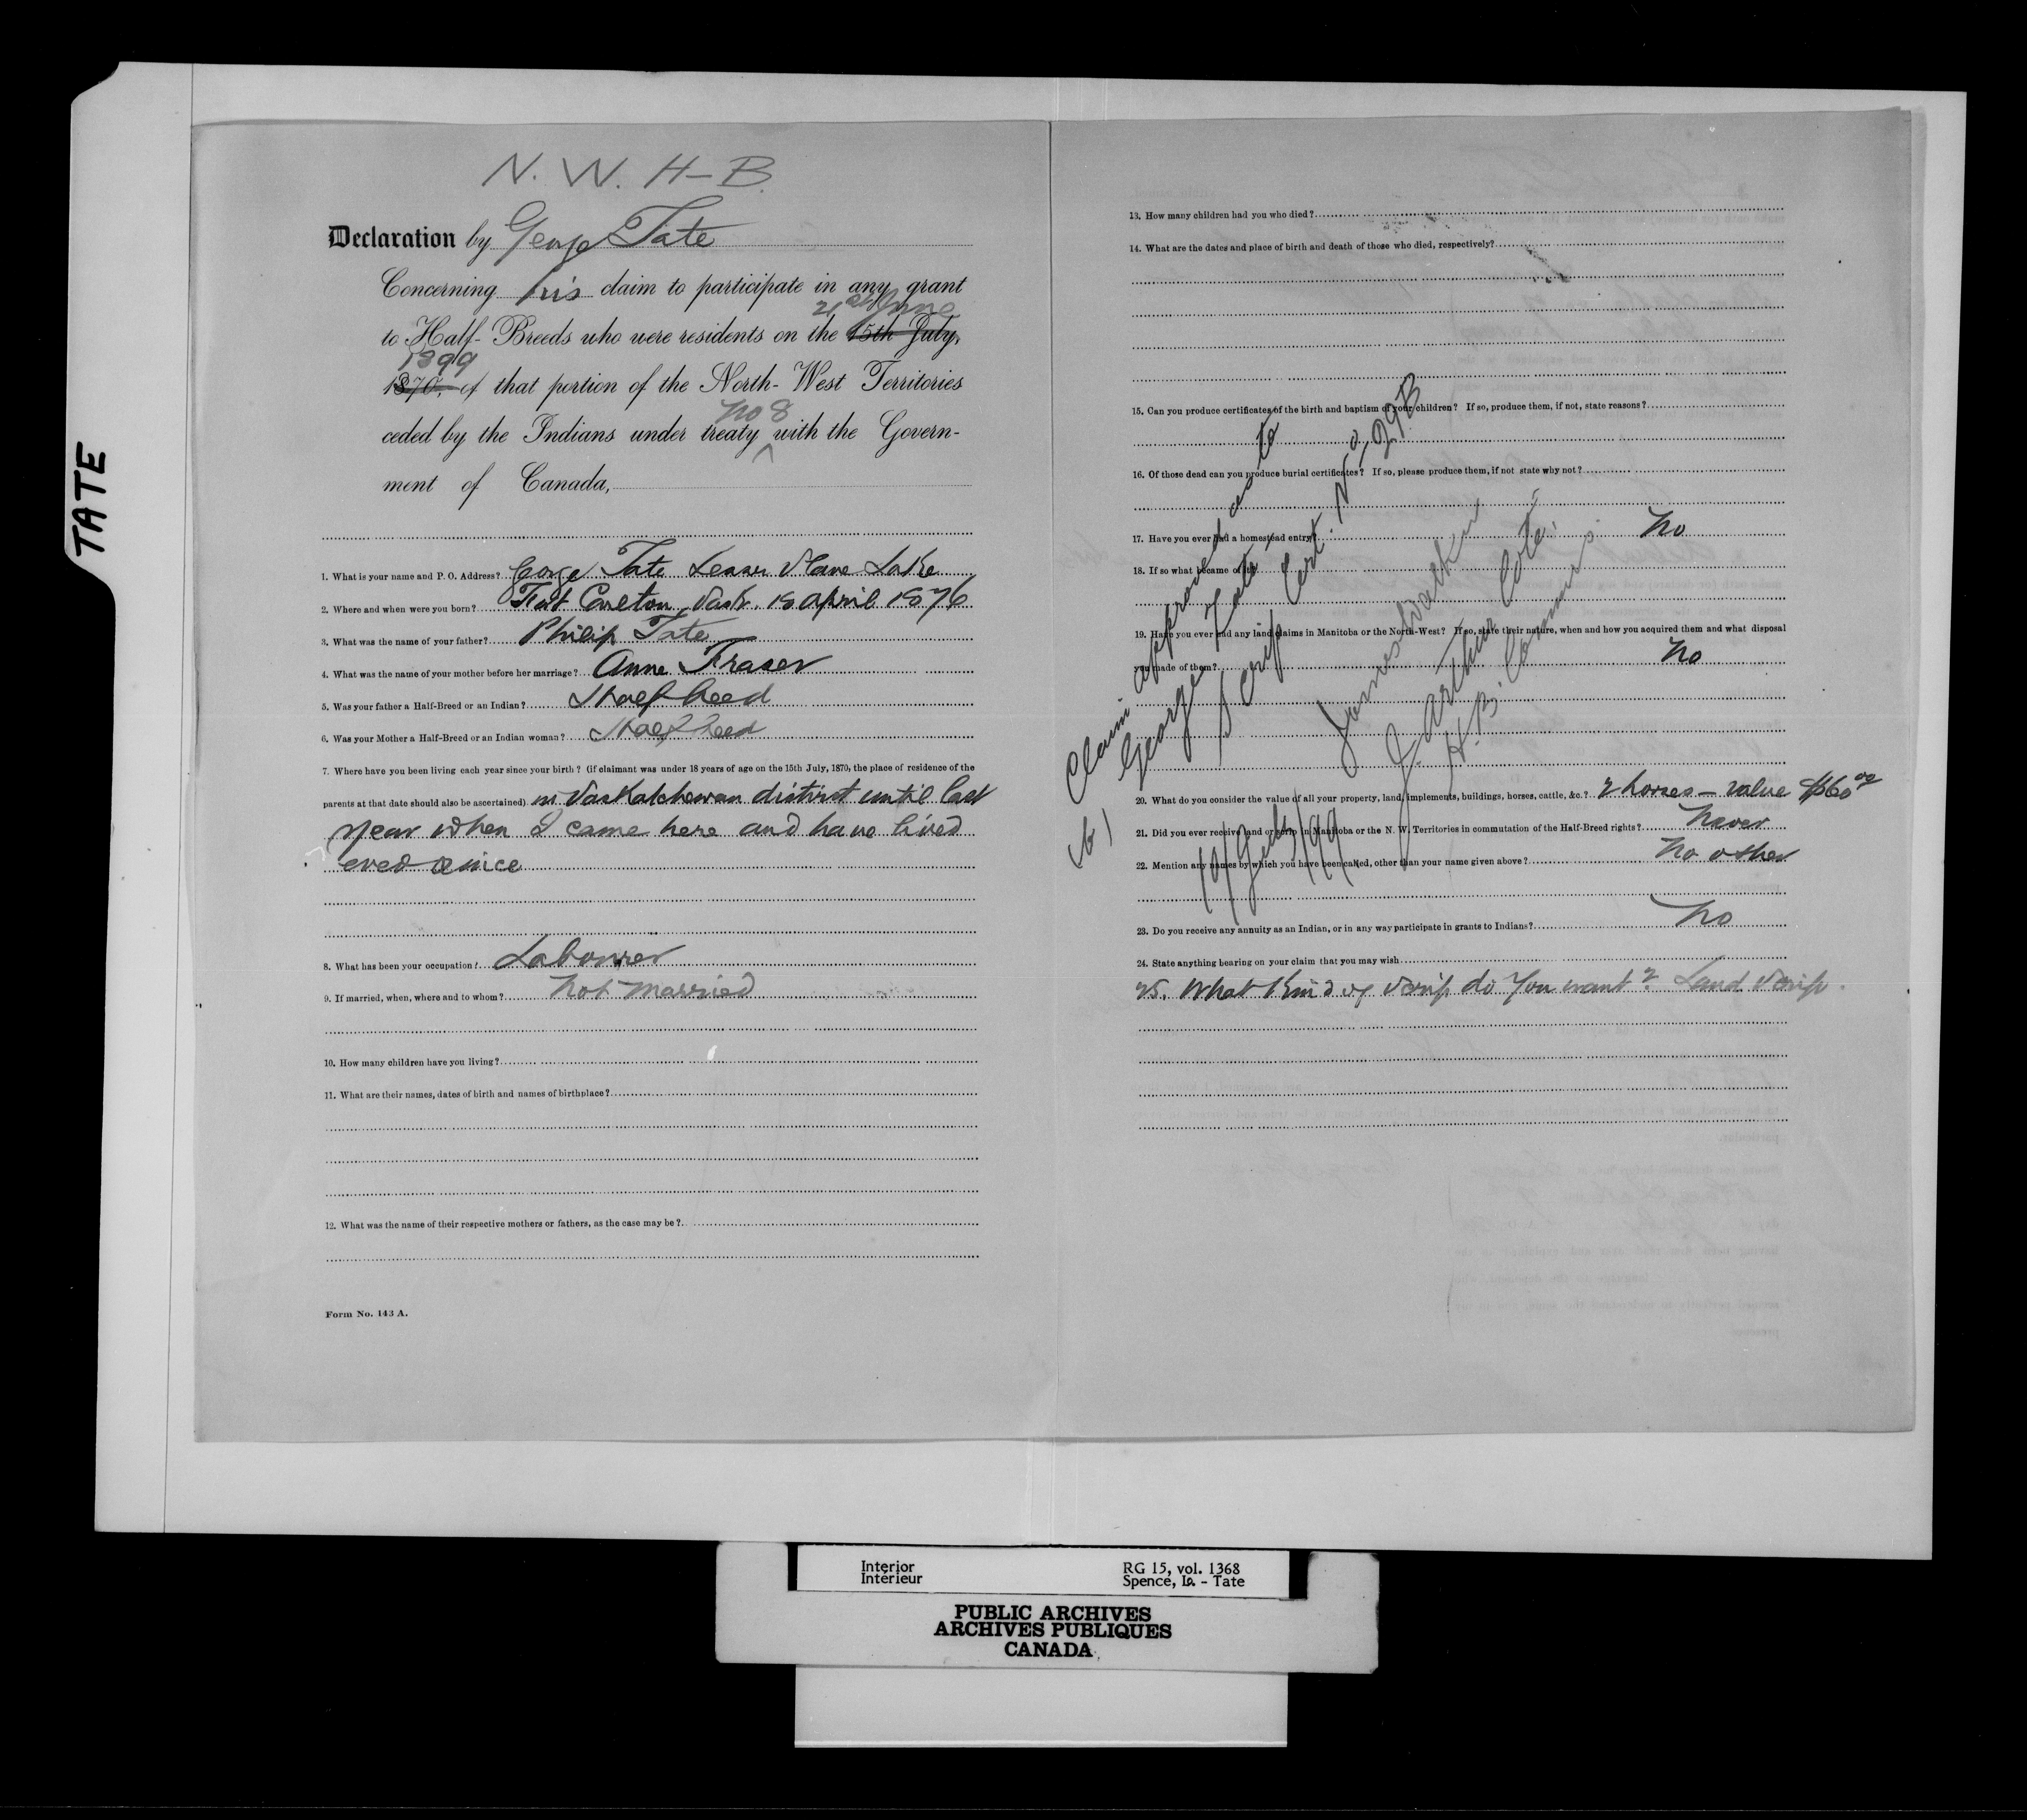 TATE
N. W. H-B.
Declaration by George Tate
Concerning his claim to participate in any grant
21st June
to Half-Breeds who were residents on the 15th July,
1899
1870, of that portion of the North-West Territories
No 8
ceded by the Indians under treaty ^ with the Govern-
ment of Canada,
1. What is your name and P. O. Address? George Tate Lesser Slave Lake
2. Where and when were you born? Fort Carlton, Sask. 18 April 1876
3. What was the name of your father? Philip Tate
4. What was the name of your mother before her marriage? Anne Fraser
5. Was your father a Half-Breed or an Indian? Half breed
6. Was your Mother a Half-Breed or an Indian woman? Half breed
7. Where have you been living each year since your birth? (if claimant was under 18 years of age on the 15th July, 1870, the place of residence of the
parents at that date should also be ascertained) in Saskatchewan district until last
year when I came here and have lived
ever since
8. What has been your occupation? Labourer
9. If married, when, where and to whom? Not married
10. How many children have you living?
11. What are their names, dates of birth and names of birthplace?
12. What was the name of their respective mothers or fathers, as the case may be?
Form No. 143 A.
13. How many children had you who died?
14. What are the dates and place of birth and death of those who died, respectively?
15. Can you produce certificates of the birth and baptism of your children? If so, produce them, if not, state reasons?
16. Of those dead can you produce burial certificates? If so, please produce them, if not state why not?
17. Have you ever had a homestead entry? No
18. If so what became of it?
19. Have you ever had any land claims in Manitoba or the North-West? If so, state their nature, when and how you acquired them and what disposal
you made of them? No
20. What do you consider the value of all your property, land, implements, buildings, horses, cattle, &c.? 2 horses - value $60 00
21. Did you ever receive land or scrip in Manitoba or the N. W. Territories in commutation of the Half-Breed rights? Never
22. Mention any names by which you have been called, other than your name given above? No other
23. Do you receive any annuity as an Indian, or in any way participate in grants to Indians? No
24. State anything bearing on your claim that you may wish
25. What kind of Scrip do you want? Land Scrip.
Claim approved as to
(b) George Tate,
Scrip Cert. No. 29B
James Walker
J. Arthur Coté.
H.B. Commrs.
10/July/99
Interior
Intérieur
RG 15, vol. 1368
Spence, Is. - Tate
PUBLIC ARCHIVES
ARCHIVES PUBLIQUES
CANADA